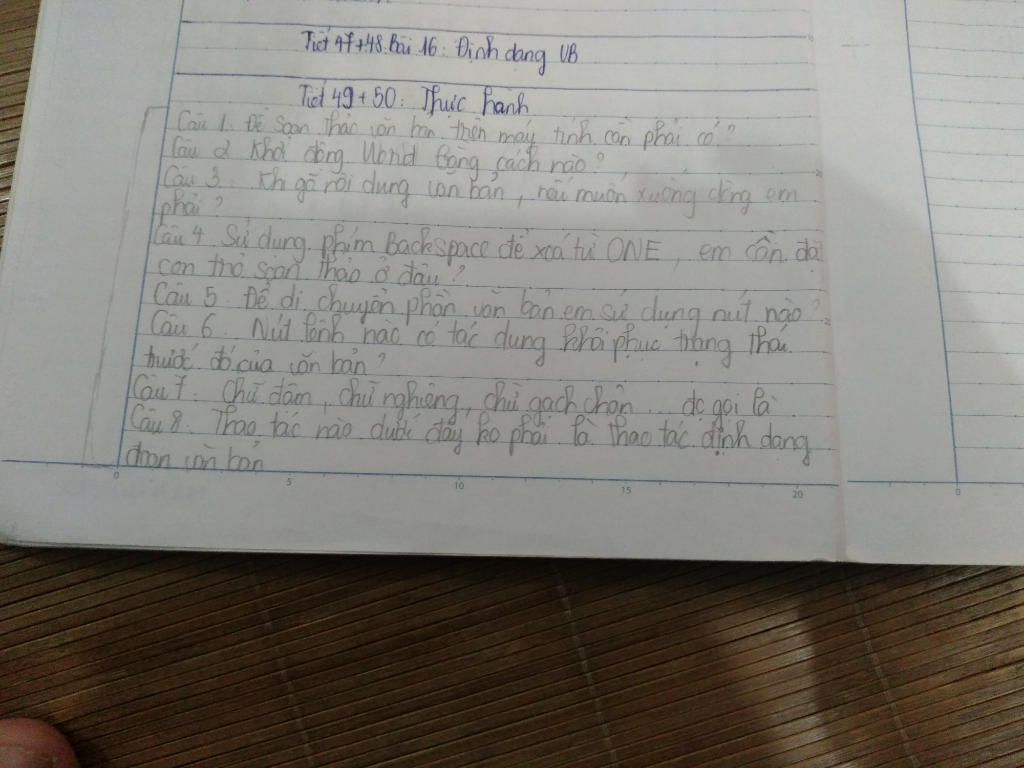 Tiết 47+48. Bài 16: Định dạng VB
Tiết 49+50: Thực hành
Câu 1. Để soạn thảo văn bản trên máy tính cần phải có?
Câu 2 Khởi động Word bằng cách nào?
Câu 3. Kh gõ nội dung văn bản, nếu muốn xuống dòng em
phải?
Câu 4. Sử dụng phím Backspace để xoá từ ONE, em cần đặt
con trỏ soạn thảo ở đâu?
Câu 5. Để di chuyển phần văn bản em sử dụng nút nào?
Câu 6. Nút lệnh nào có tác dụng khôi phục trạng thái
trước đó của văn bản?
Câu 7. Chữ đậm, chữ nghiêng, chữ gạch chân... đc gọi là
Câu 8. Thao tác nào dưới đây ko phải là thao tác định dạng
đoạn văn bản
0 5 10 15 20
0